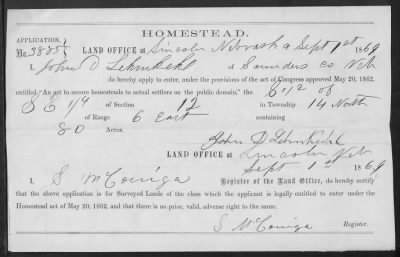 HOMESTEAD.
APPLICATION.
No. 3885½ LAND OFFICE at Lincoln Nebraska Sept 1st 1869
I, John D Lehnkuhl of Saunders Co Neb
do hereby apply to enter, under the provisions of the act of Congress approved May 20, 1862,
entitled "An act to secure homesteads to actual settlers on the public domain," the E 1/2 of
S E 1/4 of Section 12 in Township 14 North
of Range 6 East containing
80 Acres.
John D Lehnkuhl
LAND OFFICE at Lincoln Neb
Sept 1st 1869
I, S McConiga Register of the Land Office, do hereby certify
that the above application is for Surveyed Lands of the class which the applicant is legally entitled to enter under the
Homestead act of May 20, 1862, and that there is no prior, valid, adverse right to the same.
S McConiga Register.